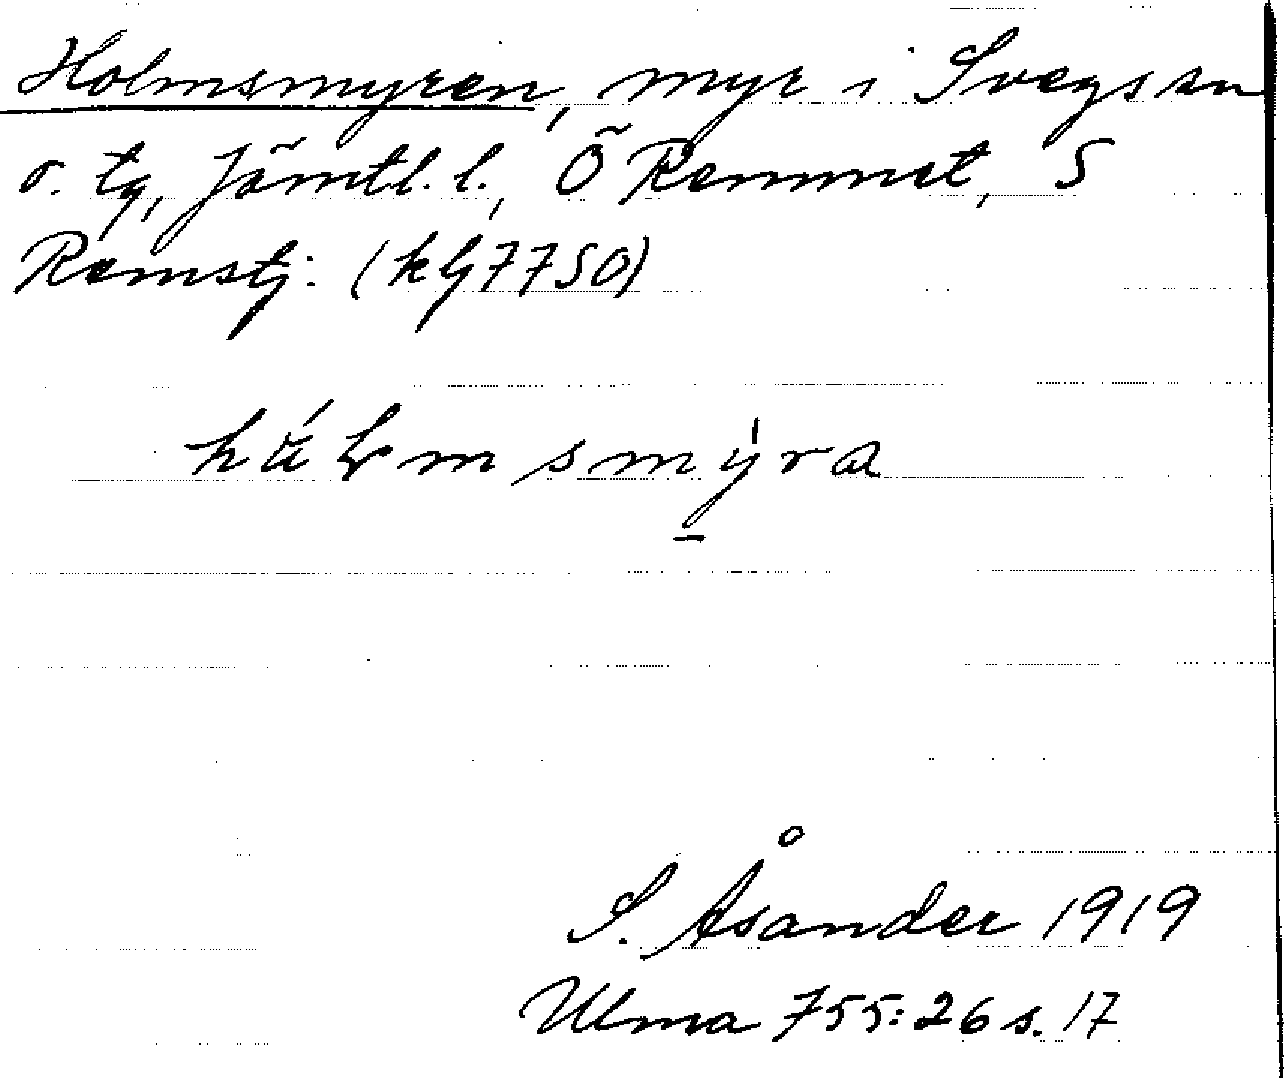 Holmsmyren, myr i Svegs sn
o. tg, Jämtl. l., Ö Remmet, S
Remstj: (kG7750)
S. Åsander 1919
Ulma 755:26 s. 17